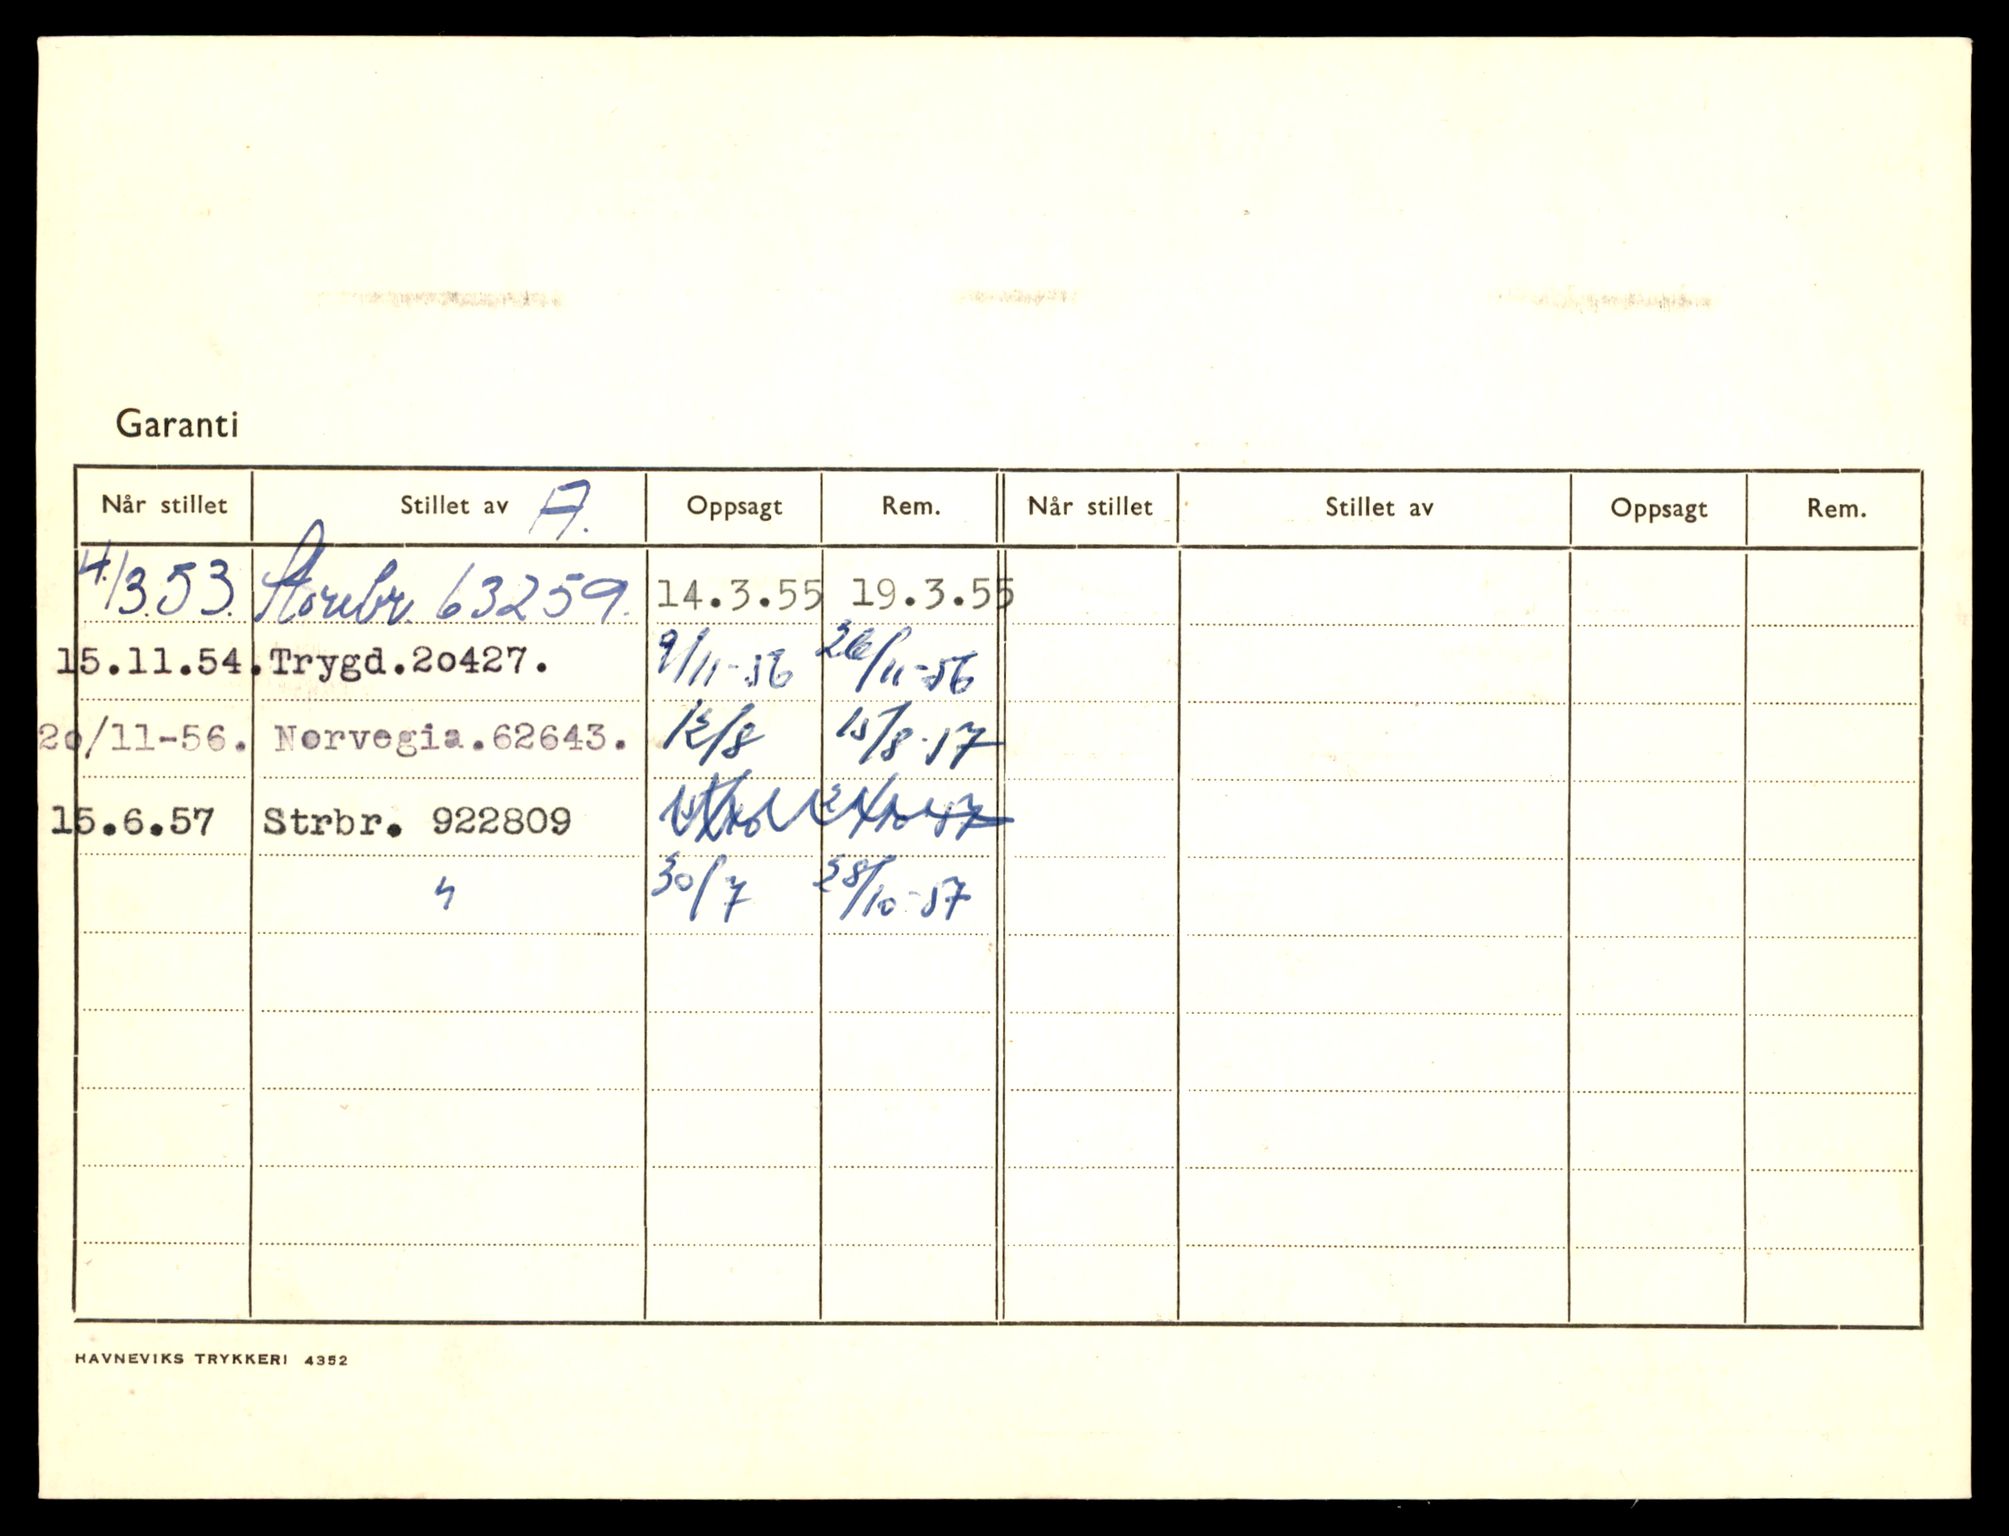 Garanti
Når stillet Stillet av A. Oppsagt Rem. Når stillet Stillet av Oppsagt Rem.
4/3.53. Storebr. 63259. 14.3.55 19.3.55
15.11.54. Trygd.20427. 9/11-56 26/11-56
20/11-56. Norvegia.62643. 12/8 15/8-57
15.6.57 Strbr. 922809
" 30/7 28/10-57
HAVNEVIKS TRYKKERI 4352